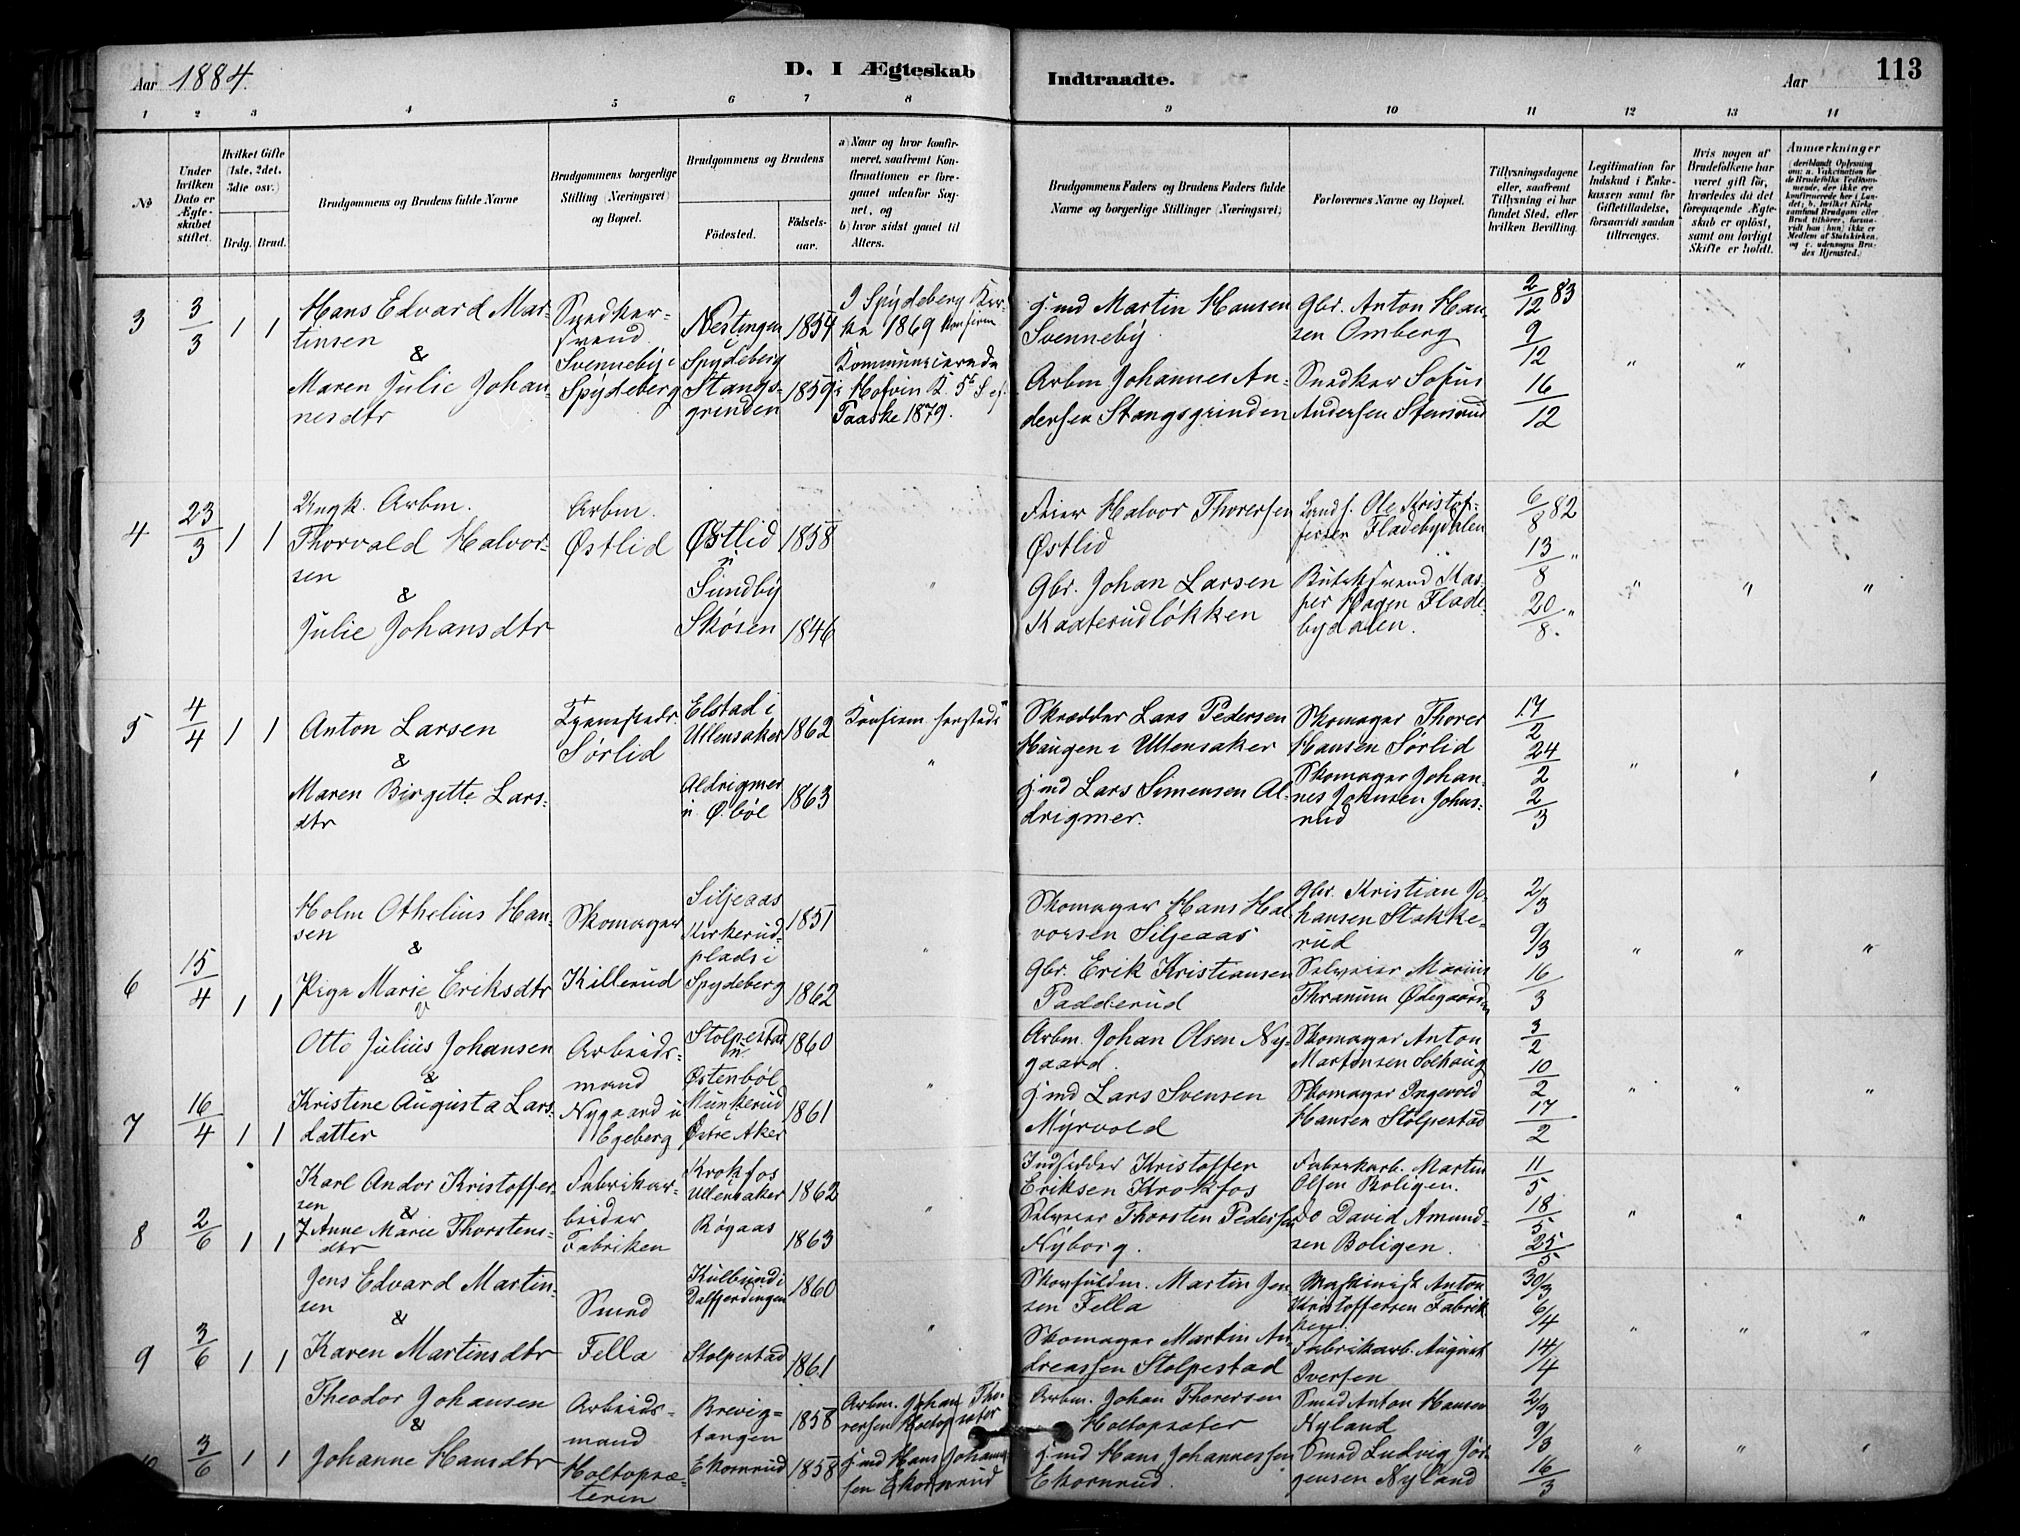 Aar 1884.
D. I Ægteskab Indtraadte.
Aar
113
1 2 3 4 5 6 7 8 9 10 11 12 13 14
No
Under hvilken Dato er Ægteskabet stiftet.
Hvilket Gifte (1ste, 2det, 3die osv.)
Brdg. Brud.
Brudgommens og Brudens fulde Navne
Brudgommens borgerlige Stilling (Næringsvei) og Bopæl.
Brudgommens og Brudens
Fødested. Fødselsaar.
a) Naar og hvor konfirmeret, saafremt Konfirmationen er foregaaet udenfor Sognet, og
b) hvor sidst gaaet til Alters.
Brudgommens Faders og Brudens Faders fulde Navne og borgerlige Stillinger (Næringsvei)
Forlovernes Navne og Bopæl.
Tillysningsdagene eller, saafremt Tillysning ei har fundet Sted, efter hvilken Bevilling.
Legitimation for Indskud i Enkekassen samt for Giftetilladelse, forsaavidt saadan tiltrænges.
Hvis nogen af Brudefolkene har været gift før, hvorledes da det foregaaende Ægteskab er opløst, samt om lovligt Skifte er holdt.
Anmærkninger
3
3/3
1 1
Hans Edvard Martinsen
&
Maren Julie Johannesdtr
Snedkersvend
Svenneby i
Spydeberg
Nestingen
Spydeberg
Stangsgrinden
1854
1859
I Spydeberg Kirke 1869 Konfirm
Kommunicerende
i Hofvin K. 5te S ef.
Paaske 1879.
Hmd Martin Hansen
Svenneby
Arbm. Johannes Andersen Stangsgrinden
Gbr. Anton Hansen Omberg
Snedker Sofus
Andersen Stensrud
2/12 83
9/12
16/12
" "
4
23/3
1 1
Ungk. Arbm.
Thorvald Halvorsen
&
Julie Johansdtr
Arbm.
Østlid
Østlid
Sundby
Skøien
1858
1846
"
Feier Halvor Thorersen
Østlid
Gbr. Johan Larsen
Kaaterudløkken
Landh. Ole Kristoffersen Fladebydalen
Kasper Hagen Fladebydalen.
6/8 82
13/8 "
20/8 "
" " "
5
4/4
1 1
Anton Larsen
&
Maren Birgitte Larsdtr
Tjenestedr.
Sørlid
Elstad i
Ullensaker
Aldrigmer
u Ø. bøl
1862
1863
Konfirm. sersteds
"
Skrædder Lars Pedersen
Haugen i Ullensaker
Hmd Lars Simensen Aldrigmer.
Skomager Thorer
Hansen Sørlid
Skomager Johannes Johnsen Johnsrud
17/2
24/2
2/3
" " "
6
15/4
1 1
Holm Othelius Hansen
&
Marie Eriksdtr
Skomager
Killerud
Siljeaas
Kirkerudplads i
Spydeberg
1851
1862
"
Skomager Hans Halvorsen Siljeaas
Gbr. Erik Kristiansen
Padderud
Gbr. Kristian Johansen Stakkerud
Selveier Marius
Thranum Ødegaarden
2/3
9/3
16/3
" " "
7
16/4
1 1
Otto Julius Johansen
&
Kristine Augusta Larsdatter
Arbeidsmand
Nygaard u
Egeberg
Stolpestad
u
Østenbøl
Munkerud
Østre Aker
1860
1861
"
Arbm. Johan Olsen Nygaard.
Hmd Lars Svensen
Myrvold
Skomager Anton
Martinsen Solhaug
Skomager Ingevald
Hansen Stolpestad
3/2
10/2
17/2
" " "
8
2/6
1 1
Karl Andor Kristoffersen
&
Anne Marie Thorstensdtr
Fabrikarbeider
Fabriken
Krokfos
Ullensaker
Røgaas
1862
1863
"
Indsidder Kristoffer
Eriksen Krokfos
Selveier Thorsten Pedersen
Nyborg.
Fabrikarb. Martin
Olsen Boligen.
Do David Amundsen Boligen.
11/5
18/5
25/5
" " "
9
3/6
1 1
Jens Edvard Martinsen
&
Karen Martinsdtr
Smed
Fella
Kulbund i
Dalfjerdingen
Stolpestad
1860
1861
"
Skovfuldm. Martin Jensen Fella
Skomager Martin Andreassen Stolpestad
Maskinist Anton
Kristoffersen Fabriken
Fabrikarb. August
Iversen
30/3
6/4
14/4
" " "
3/6
1 1
Theodor Johansen
&
Johanne Hansdtr
Arbeidsmand
Holtopsæteren
Brevigtangen
Ekornrud
1858
1858
Arbm. Johan Thorersen Holtopsæter
Hmd Hans Johannessen Ekornrud
Arbm. Johan Thorersen
Holtopsæter
Hmd Hans Johannessen
Ekornrud.
Smed Anton Hansen
Nyland
Smed Ludvig Jørgensen Nyland
2/3
9/3
16/3
" " "